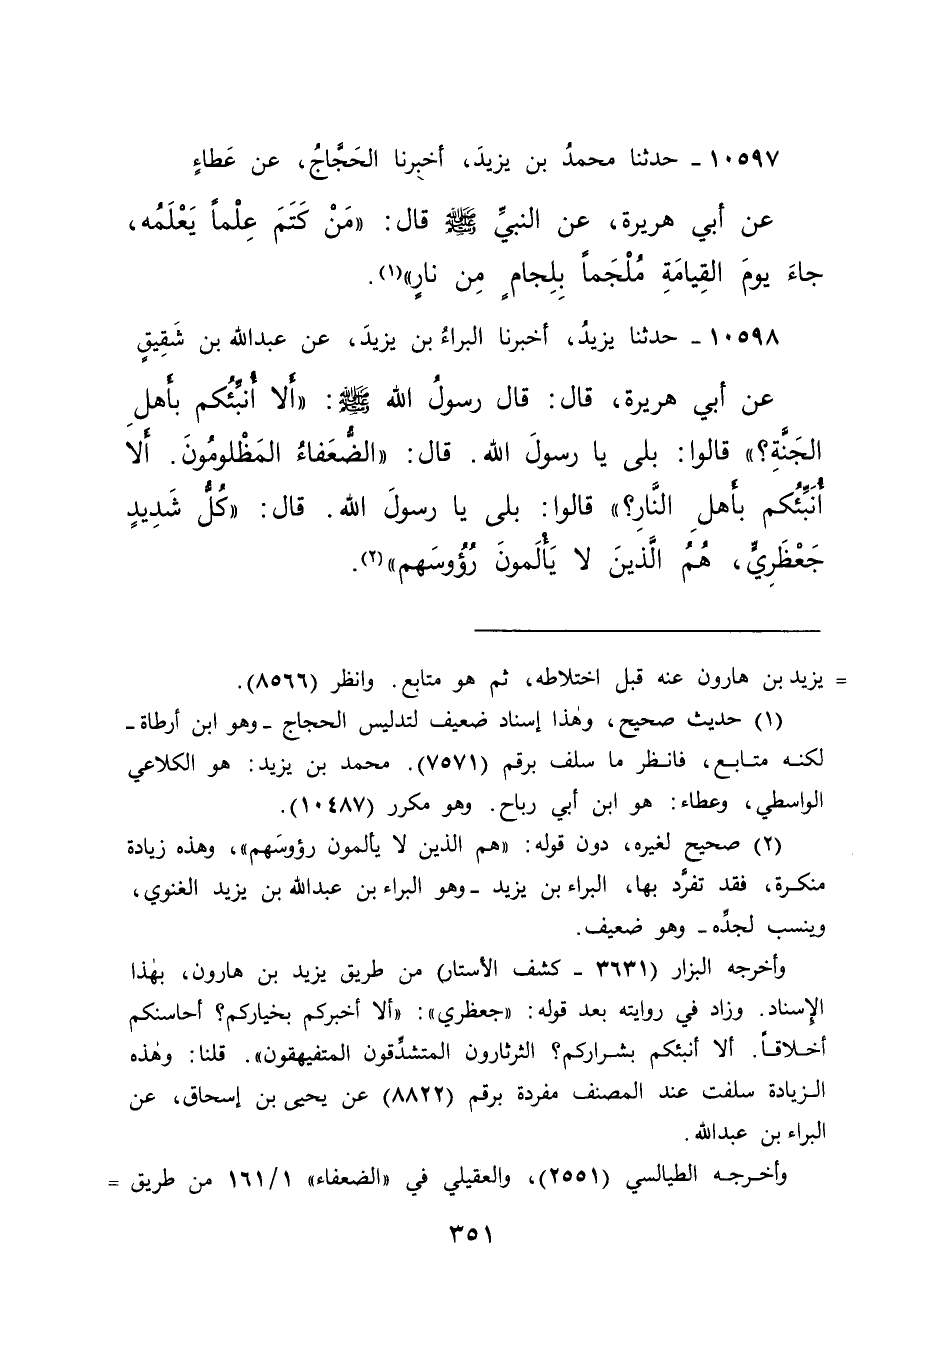 ١٠٥٩٧ - حدثنا محمدُ بن يزيدَ، أخبرنا الحَجَّاجُ، عن عَطاءٍ
عن أبي هريرة، عن النبيِّ ﷺ قال: «مَنْ كَتَمَ عِلْماً يَعْلَمُه،
جاءَ يومَ القِيامَةِ مُلْجَماً بِلِجامٍ مِن نارٍ»(١).
١٠٥٩٨ - حدثنا يزيدُ، أخبرنا البراءُ بن يزيدَ، عن عبدالله بن شَقِيقٍ
عن أبي هريرة، قال: قال رسولُ الله ﷺ: «أَلا أُنَبِّئُكم بأَهلِ
الجَنَّةِ؟» قالوا: بلى يا رسولَ الله. قال: «الضُّعَفاءُ المَظْلومُونَ. أَلا
أُنَبِّئُكم بأَهلِ النَّارِ؟» قالوا: بلى يا رسولَ الله. قال: «كُلُّ شَدِيدٍ
جَعْظَرِيٍّ، هُمُ الَّذينَ لا يَأْلَمونَ رُؤُوسَهم»(٢).
= يزيد بن هارون عنه قبل اختلاطه، ثم هو متابع. وانظر (٨٥٦٦).
(١) حديث صحيح، وهٰذا إسناد ضعيف لتدليس الحجاج - وهو ابن أرطاة -
لكنه متابع، فانظر ما سلف برقم (٧٥٧١). محمد بن يزيد: هو الكلاعي
الواسطي، وعطاء: هو ابن أبي رباح. وهو مكرر (١٠٤٨٧).
(٢) صحيح لغيره، دون قوله: «هم الذين لا يألمون رؤوسَهم»، وهذه زيادة
منكرة، فقد تفرَّد بها، البراء بن يزيد - وهو البراء بن عبدالله بن يزيد الغنوي،
وينسب لجدِّه - وهو ضعيف.
وأخرجه البزار (٣٦٣١ - كشف الأستار) من طريق يزيد بن هارون، بهٰذا
الإسناد. وزاد في روايته بعد قوله: «جعظري»: «ألا أخبركم بخياركم؟ أحاسنكم
أخلاقاً. ألا أنبئكم بشراركم؟ الثرثارون المتشدِّقون المتفيهقون». قلنا: وهٰذه
الزيادة سلفت عند المصنف مفردة برقم (٨٨٢٢) عن يحيى بن إسحاق، عن
البراء بن عبدالله.
وأخرجه الطيالسي (٢٥٥١)، والعقيلي في «الضعفاء» ١٦١/١ من طريق =
٣٥١